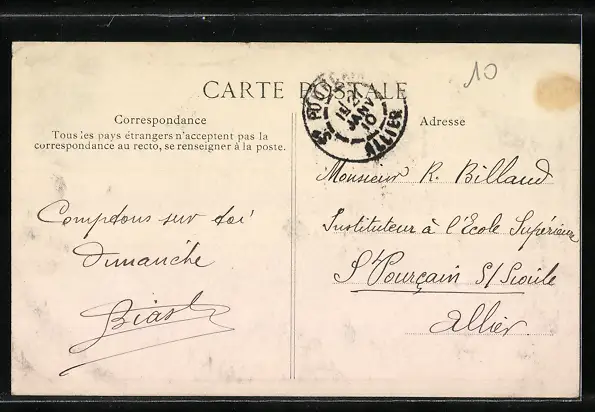 10
CARTE POSTALE
Sᵗ POURÇAIN
21
JANV
10
ALLIER
Correspondance
Tous les pays étrangers n'acceptent pas la
correspondance au recto, se renseigner à la poste.
Comptons sur toi
dimanche
Adresse
Monsieur R. Billaud
Instituteur à l'École Supérieure
S' Pourçain S/ Sioule
Allier